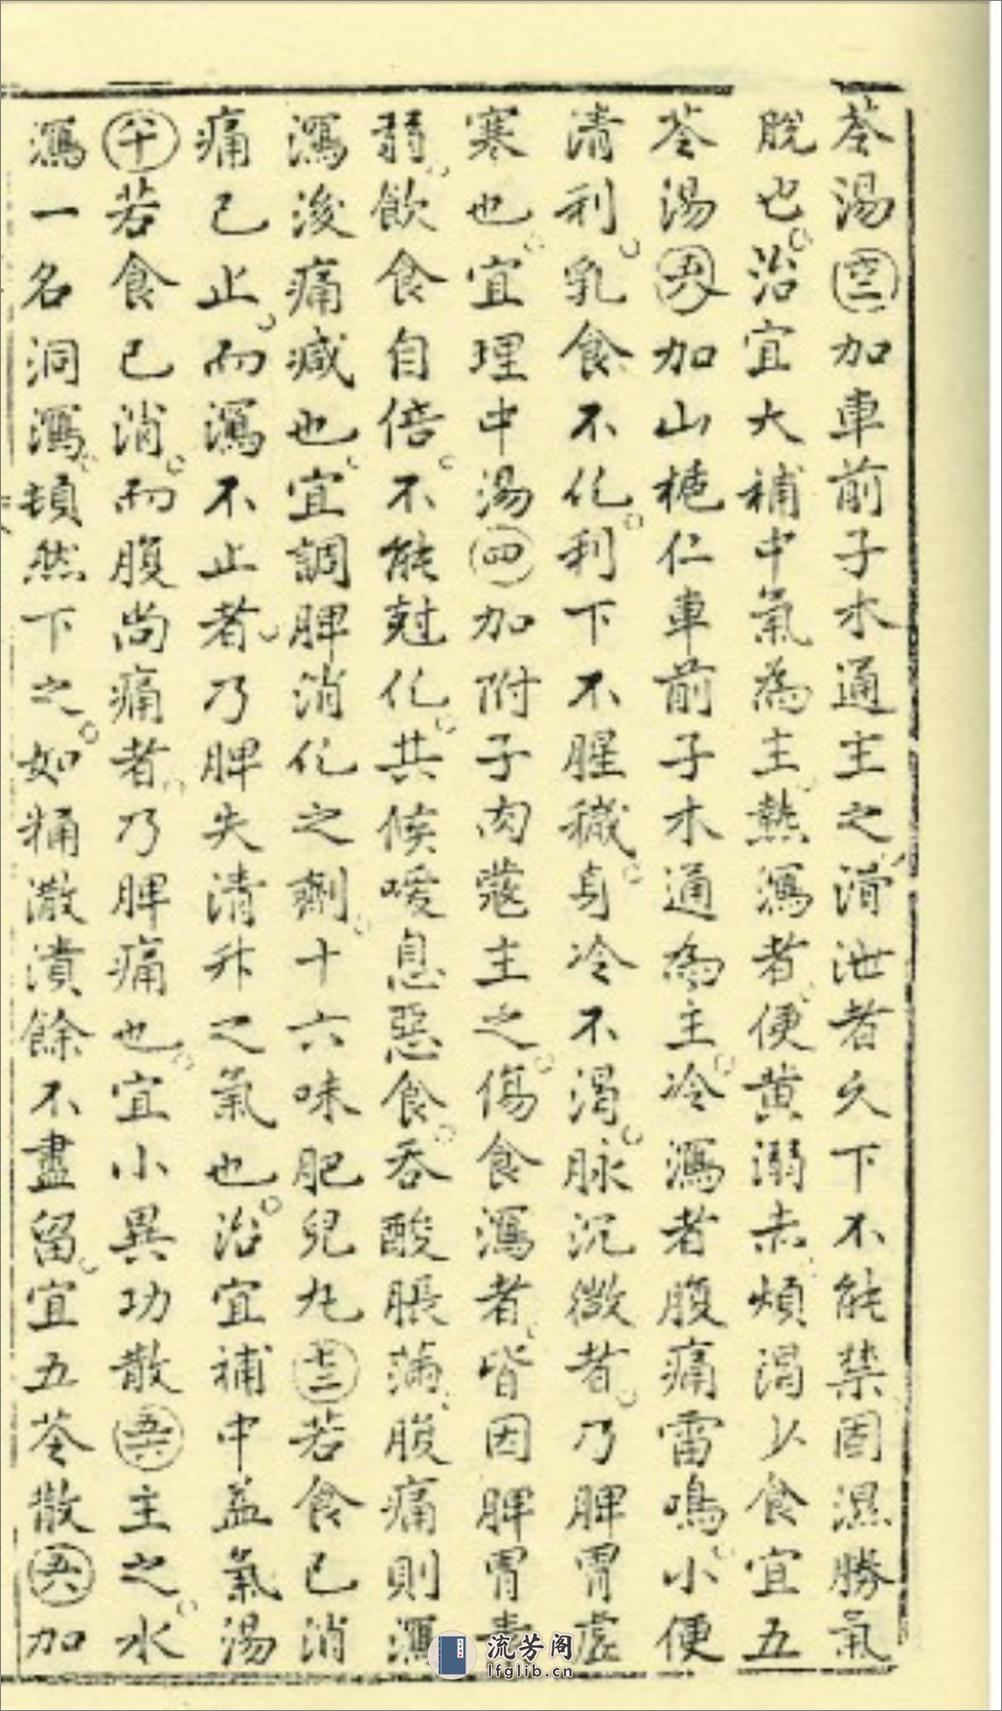 苓湯(六二)加車前子木通主之滑泄者久下不能禁固濕勝氣
脫也治宜大補中氣為主熱瀉者便黃溺赤煩渴以食宜五
苓湯加山梔仁車前子木通為主冷瀉者腹痛雷鳴小便
清利乳食不化利下不腥穢身冷不渴脉沉微者乃脾胃虛
寒也宜理中湯(四)加附子肉蔻主之傷食瀉者皆因脾胃素
弱飲食自倍不能尅化其候噯息惡食吞酸脹滿腹痛則瀉
瀉後痛減也宜調脾消化之劑十六味肥兒丸(十二)若食已消
痛已止而瀉不止者乃脾失清升之氣也治宜補中益氣湯
(八十)若食已消而腹尚痛者乃脾痛也宜小異功散(五六)主之水
瀉一名洞瀉頓然下之如桶澈潰餘不盡留宜五苓散(五八)加
流芳阁
lfglib.cn